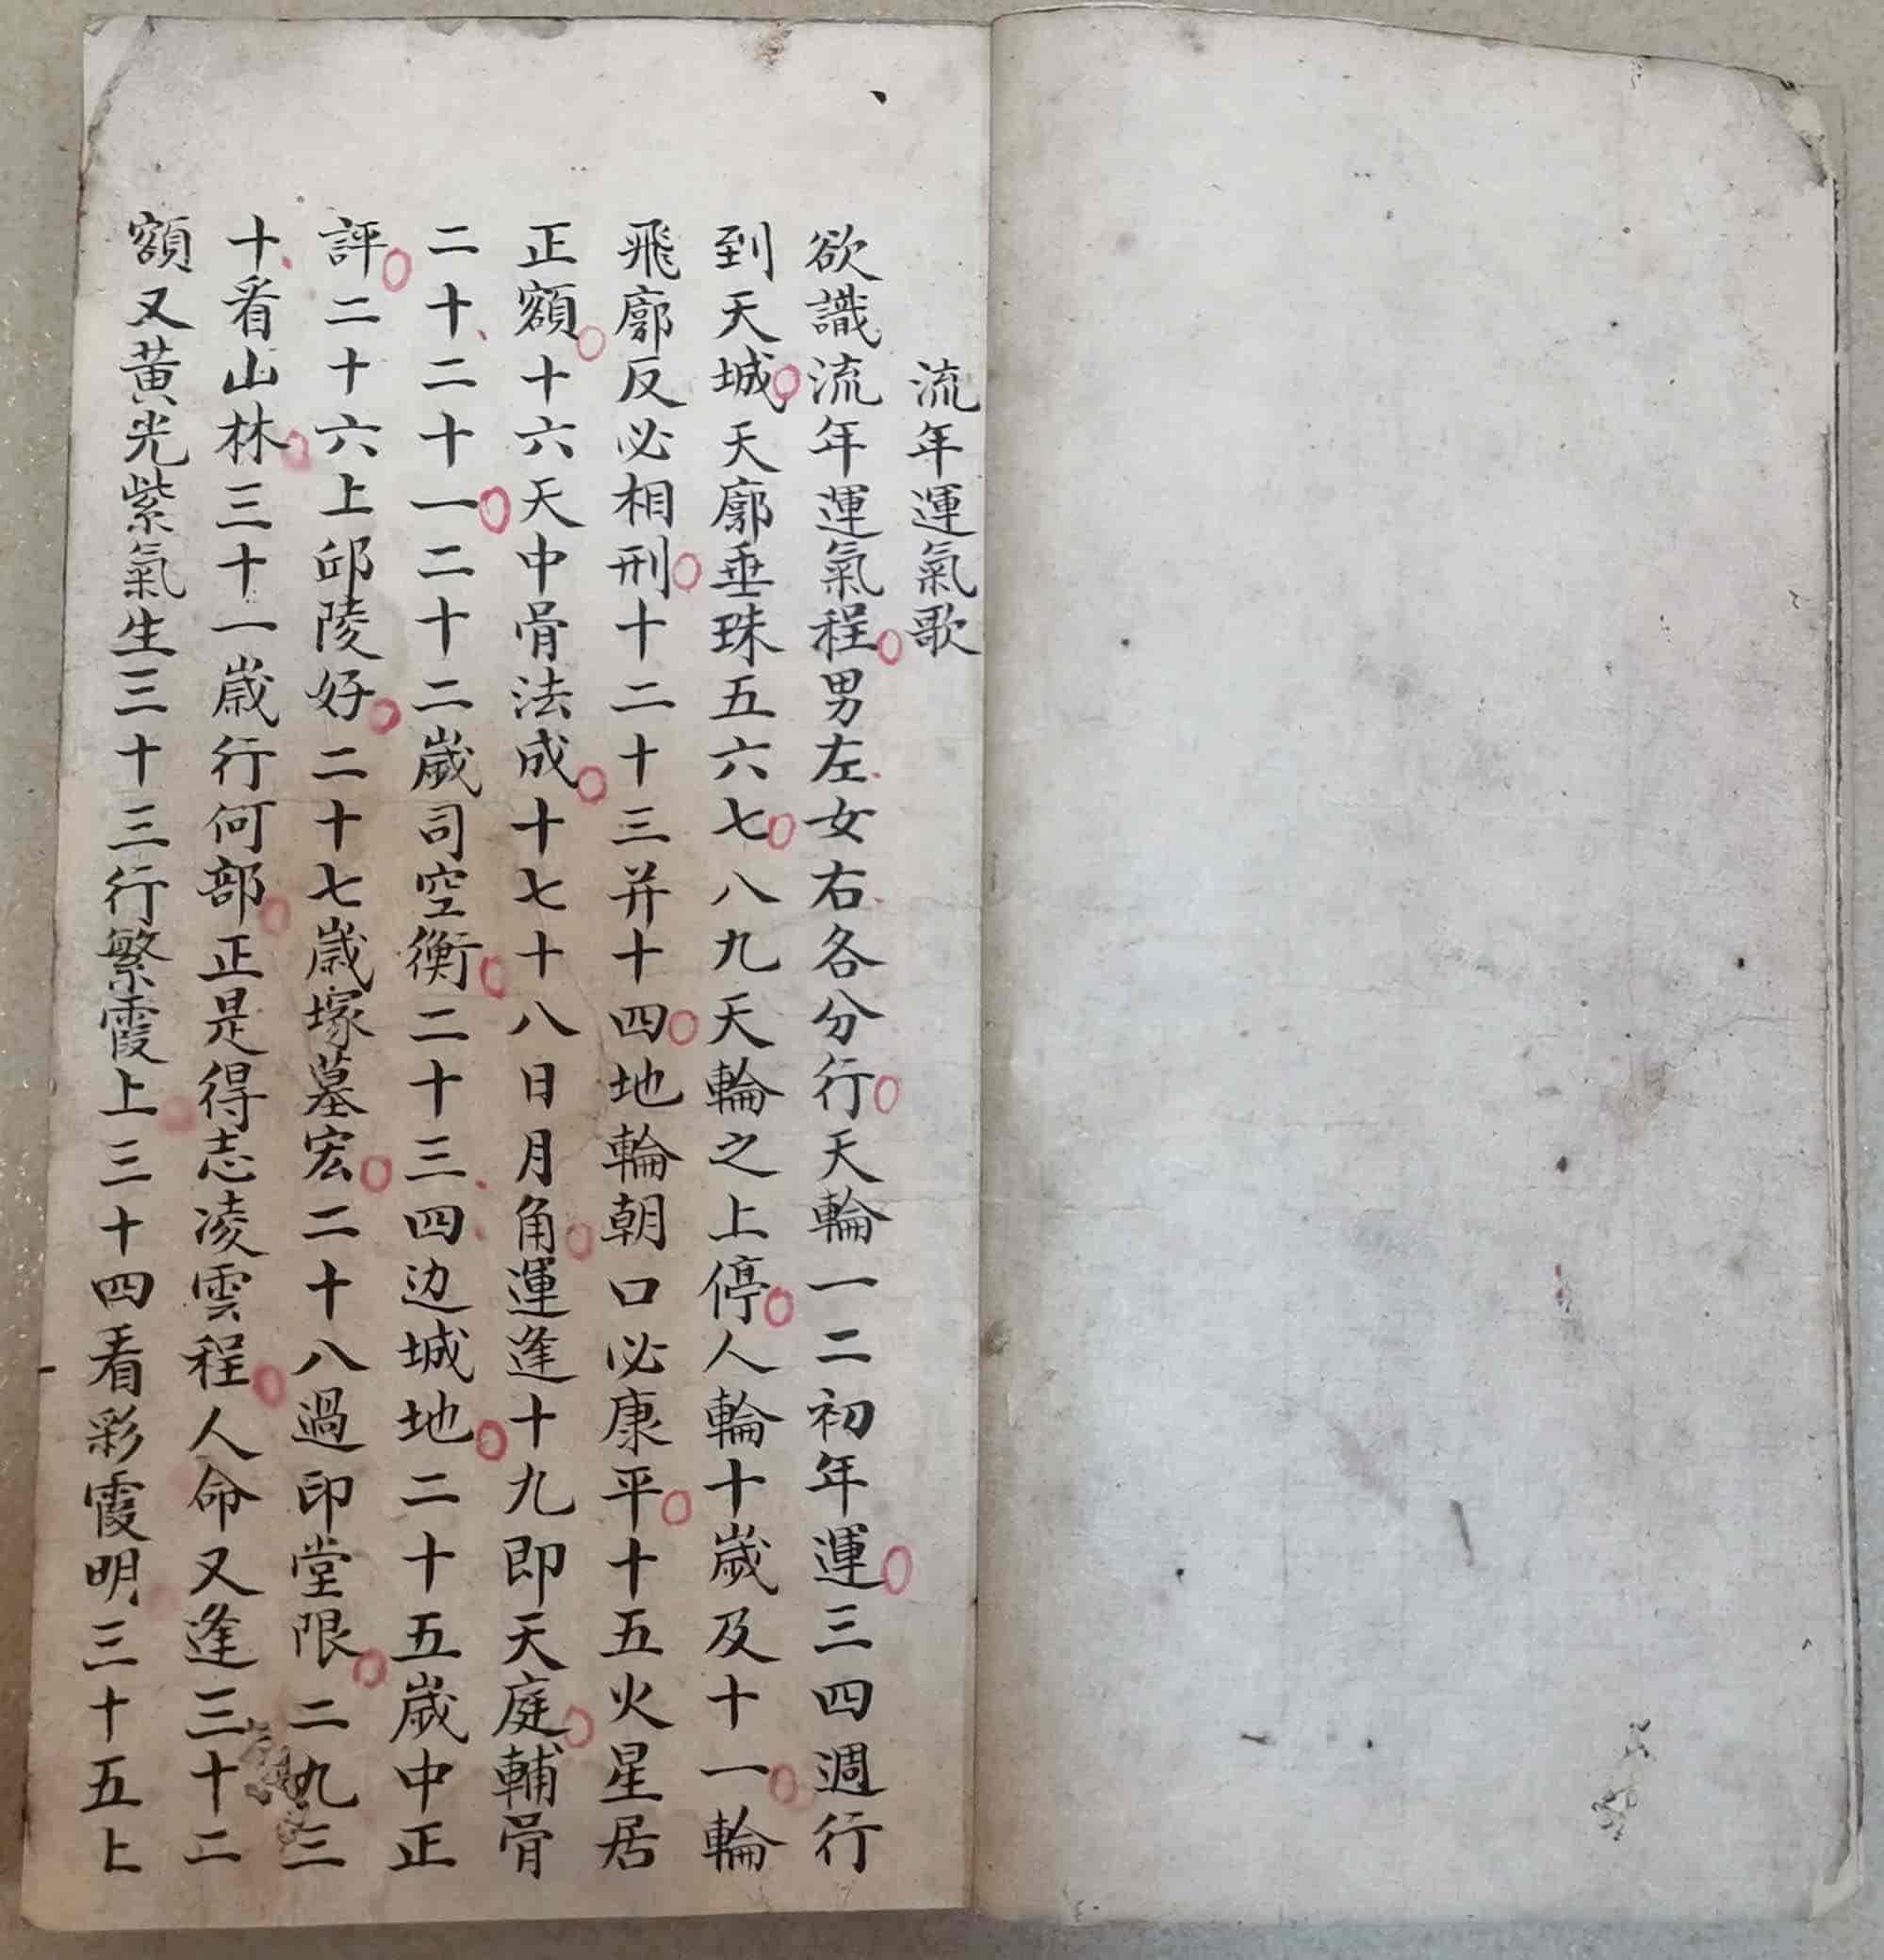 流年運氣歌
欲識流年運氣程男左女右各分行天輪一二初年運三四週行
到天城天廓垂珠五六七八九天輪之上停人輪十歲及十一輪
飛廓反必相刑十二十三并十四地輪朝口必康平十五火星居
正額十六天中骨法成十七十八日月角運逢十九即天庭輔骨
二十二十一二十二歲司空衡二十三四边城地二十五歲中正
評二十六上邱陵好二十七歲塚墓宏二十八過印堂限二九三
十看山林三十一歲行何部正是得志凌雲程人命又逢三十二
額又黃光紫氣生三十三行繁霞上三十四看彩霞明三十五上